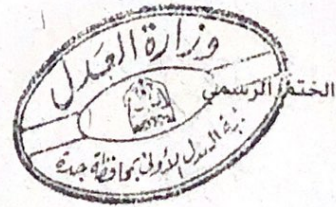 وزارة العدل
الختم الرسمي
كتابة العدل الأولى بمحافظة جدة